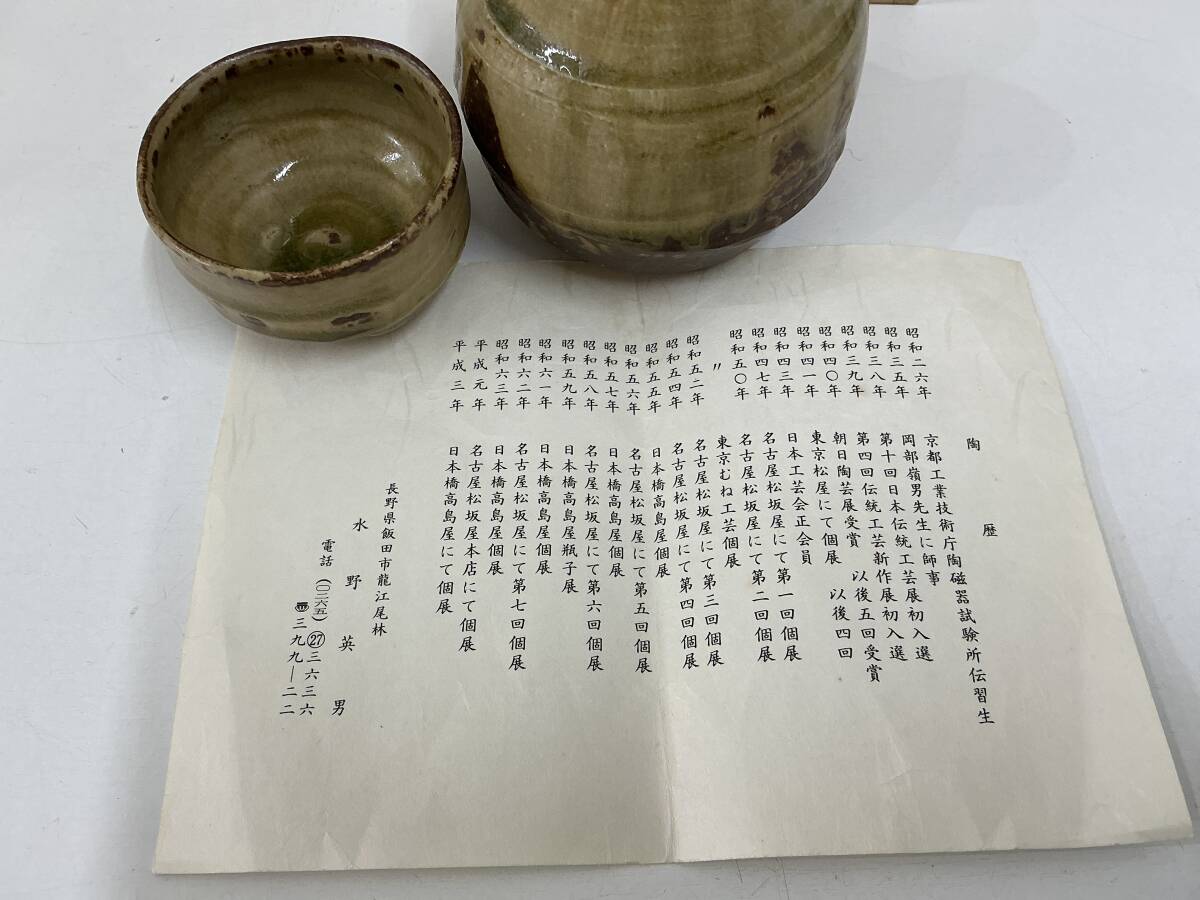 陶歴
昭和二六年 京都工業技術庁陶磁器試験所伝習生
昭和三五年 岡部嶺男先生に師事
昭和三八年 第十回日本伝統工芸展初入選
昭和三九年 第四回伝統工芸新作展初入選
昭和四〇年 朝日陶芸展受賞 以後五回受賞
昭和四一年 東京松屋にて個展 以後四回
昭和四三年 日本工芸会正会員
昭和四七年 名古屋松坂屋にて第一回個展
昭和五〇年 名古屋松坂屋にて第二回個展
〃 東京むね工芸個展
昭和五二年 名古屋松坂屋にて第三回個展
昭和五四年 名古屋松坂屋にて第四回個展
昭和五五年 日本橋高島屋個展
昭和五六年 名古屋松坂屋にて第五回個展
昭和五七年 日本橋高島屋個展
昭和五八年 名古屋松坂屋にて第六回個展
昭和五九年 日本橋高島屋瓶子展
昭和六一年 日本橋高島屋個展
昭和六二年 名古屋松坂屋にて第七回個展
昭和六三年 日本橋高島屋個展
平成元年 名古屋松坂屋本店にて個展
平成三年 日本橋高島屋にて個展
長野県飯田市龍江尾林
水野英男
電話(〇二六五)㉗三六三六
〠三九九―二二